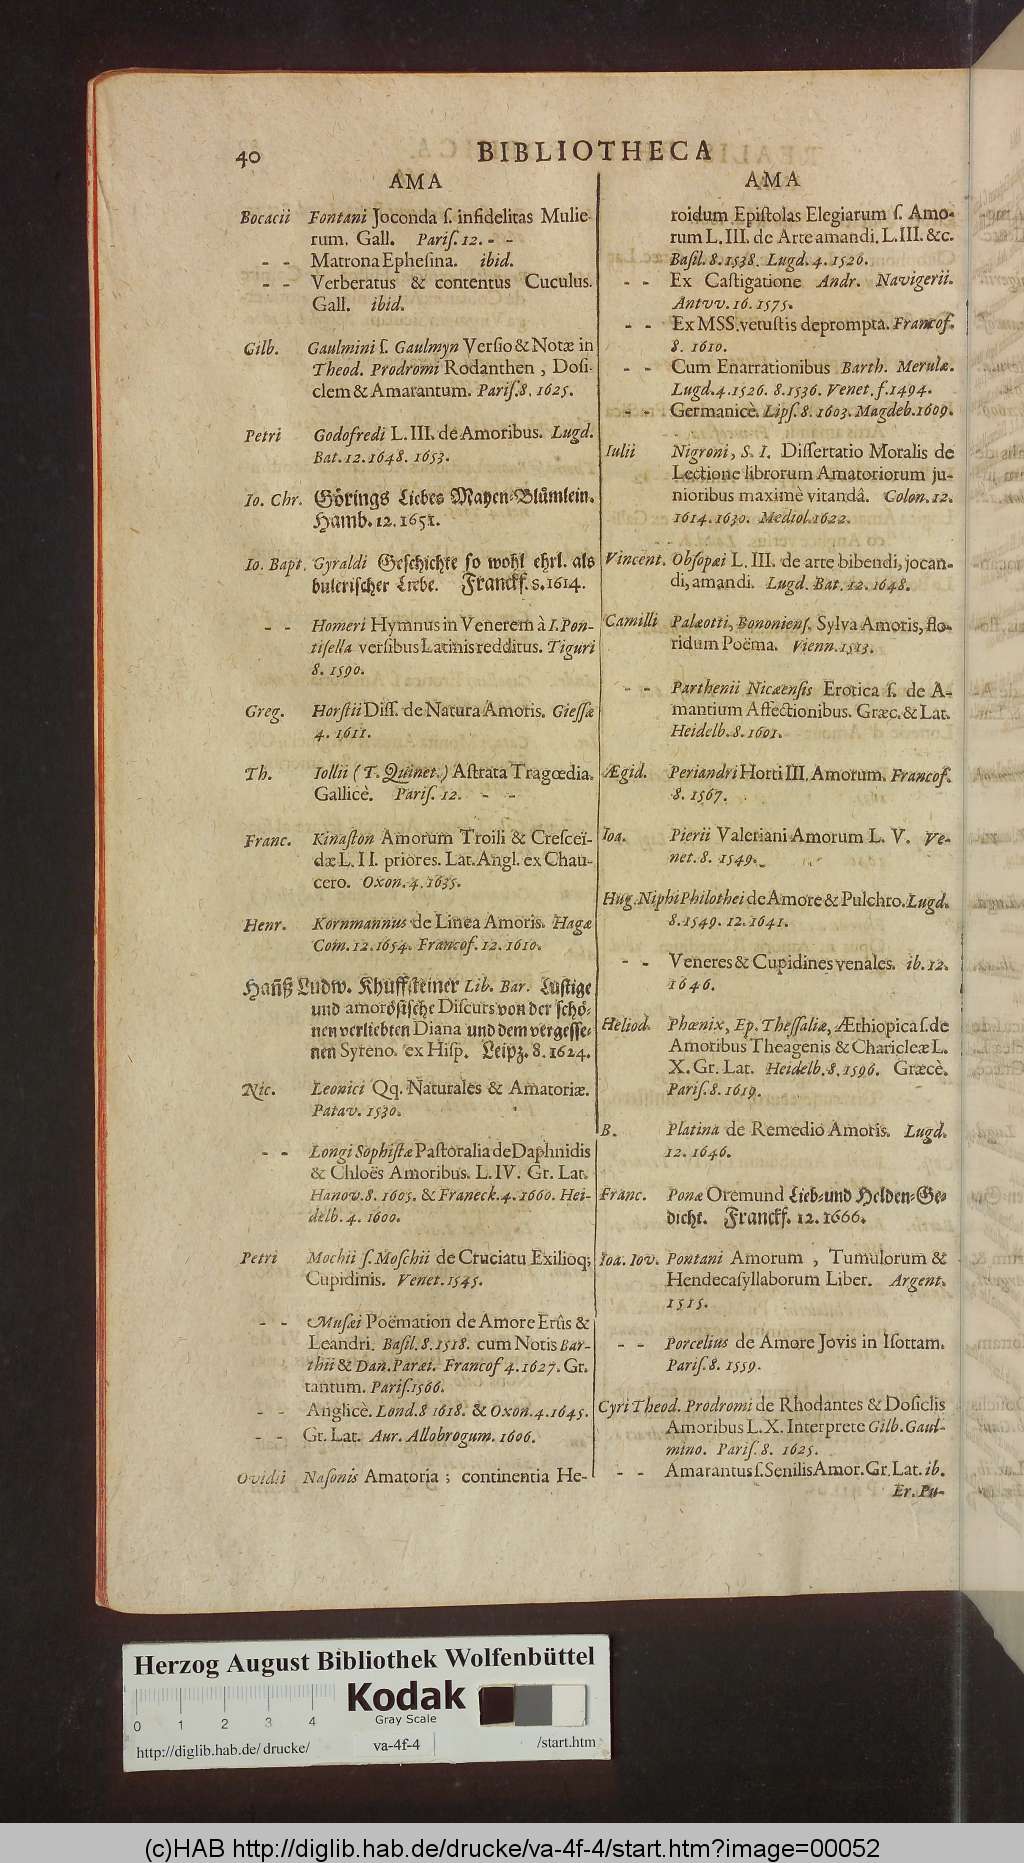 40
BIBLIOTHECA
AMA
Bocacii Fontani Joconda ſ. infidelitas Mulie-
rum. Gall. Pariſ. 12. - -
- - Matrona Epheſina. ibid.
- - Verberatus & contentus Cuculus.
Gall. ibid.
Gilb. Gaulmini ſ. Gaulmyn Verſio & Notæ in
Theod. Prodromi Rodanthen, Doſi-
clem & Amarantum. Pariſ. 8. 1625.
Petri Godofredi L. III. de Amoribus. Lugd.
Bat. 12. 1648. 1653.
Io. Chr. Görings Liebes Mayen-Blümlein.
Hamb. 12. 1651.
Io. Bapt. Gyraldi Geſchichte ſo wohl ehrl. als
buleriſcher Liebe. Franckf. 8. 1614.
- - Homeri Hymnus in Venerem à I. Pon-
tiſella verſibus Latinis redditus. Tiguri
8. 1590.
Greg. Horſtii Diſſ. de Natura Amoris. Gieſſæ
4. 1611.
Th. Iollii (T. Quinet.) Aſtrata Tragœdia.
Gallicè. Pariſ. 12. - -
Franc. Kinaſton Amorum Troili & Creſceï-
dæ L. II. priores. Lat. Angl. ex Chau-
cero. Oxon. 4. 1635.
Henr. Kornmannus de Linea Amoris. Hagæ
Com. 12. 1654. Francof. 12. 1610.
Hanß Ludw. Khuffſteiner Lib. Bar. Luſtige
und amoröſiſche Diſcurs von der ſchö-
nen verliebten Diana und dem vergeſſe-
nen Syreno. ex Hiſp. Leipz. 8. 1624.
Nic. Leonici Qq. Naturales & Amatoriæ.
Patav. 1530.
- - Longi Sophiſtæ Paſtoralia de Daphnidis
& Chloës Amoribus. L. IV. Gr. Lat.
Hanov. 8. 1605. & Franeck. 4. 1660. Hei-
delb. 4. 1600.
Petri Mochii ſ. Moſchii de Cruciatu Exilioq;
Cupidinis. Venet. 1545.
- - Muſæi Poëmation de Amore Erûs &
Leandri. Baſil. 8. 1518. cum Notis Bar-
thii & Dan. Paræi. Francof 4. 1627. Gr.
tantum. Pariſ. 1566.
- - Anglicè. Lond. 8 1618. & Oxon. 4. 1645.
- - Gr. Lat. Aur. Allobrogum. 1606.
Ovidii Naſonis Amatoria; continentia He-
AMA
roidum Epiſtolas Elegiarum ſ. Amo-
rum L. III. de Arte amandi. L. III. &c.
Baſil. 8. 1538. Lugd. 4. 1526.
- - Ex Caſtigatione Andr. Navigerii.
Antvv. 16. 1575.
- - Ex MSS. vetuſtis deprompta. Francof.
8. 1610.
- - Cum Enarrationibus Barth. Merulæ.
Lugd. 4. 1526. 8. 1536. Venet. f. 1494.
- - Germanicè. Lipſ. 8. 1603. Magdeb. 1609.
Iulii Nigroni, S. I. Diſſertatio Moralis de
Lectione librorum Amatoriorum ju-
nioribus maximè vitandâ. Colon. 12.
1614. 1630. Mediol. 1622.
Vincent. Obſopæi L. III. de arte bibendi, jocan-
di, amandi. Lugd. Bat. 12. 1648.
Camilli Palæotti, Bononienſ. Sylva Amoris, flo-
ridum Poëma. Vienn. 1513.
- - Parthenii Nicæenſis Erotica ſ. de A-
mantium Affectionibus. Græc. & Lat.
Heidelb. 8. 1601.
Ægid. Periandri Horti III. Amorum. Francof.
8. 1567.
Ioa. Pierii Valeriani Amorum L. V. Ve-
net. 8. 1549.
Hug. Niphi Philothei de Amore & Pulchro. Lugd.
8. 1549. 12. 1641.
- - Veneres & Cupidines venales. ib. 12.
1646.
Heliod. Phœnix, Ep. Theſſaliæ, Æthiopica ſ. de
Amoribus Theagenis & Charicleæ L.
X. Gr. Lat. Heidelb. 8. 1596. Græcè.
Pariſ. 8. 1619.
B. Platina de Remedio Amoris. Lugd.
12. 1646.
Franc. Ponæ Oremund Lieb- und Helden-Ge-
dicht. Franckf. 12. 1666.
Ioa. Iov. Pontani Amorum, Tumulorum &
Hendecaſyllaborum Liber. Argent.
1515.
- - Porcelius de Amore Jovis in Iſottam.
Pariſ. 8. 1559.
Cyri Theod. Prodromi de Rhodantes & Doſiclis
Amoribus L. X. Interprete Gilb. Gaul-
mino. Pariſ. 8. 1625.
- - Amarantus ſ. Senilis Amor. Gr. Lat. ib.
Er. Pu-
Herzog August Bibliothek Wolfenbüttel
Kodak
Gray Scale
0 1 2 3 4
http://diglib.hab.de/drucke/ va-4f-4 /start.htm
(c)HAB http://diglib.hab.de/drucke/va-4f-4/start.htm?image=00052